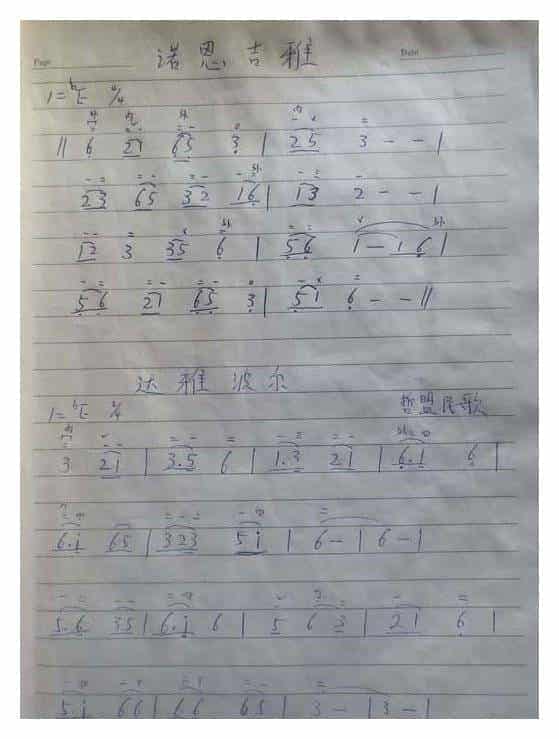 Page
诺恩吉雅
Date
1=ᵇE 4/4
‖ 6 21 65 3 | 25 3 - - |
23 65 32 16 | 13 2 - - |
12 3 35 6 | 56 1 - 1 6 |
56 21 65 3 | 51 6 - - ‖
达雅波尔
1=ᵇE
哲盟民歌
3 21 | 3.5 6 | 1.3 21 | 6.1 6 |
6.1 65 | 323 51 | 6 - | 6 - |
5.6 35 | 6.1 6 | 5 6 3 | 21 6 |
51 66 | 65 | 3 - | 3 - |